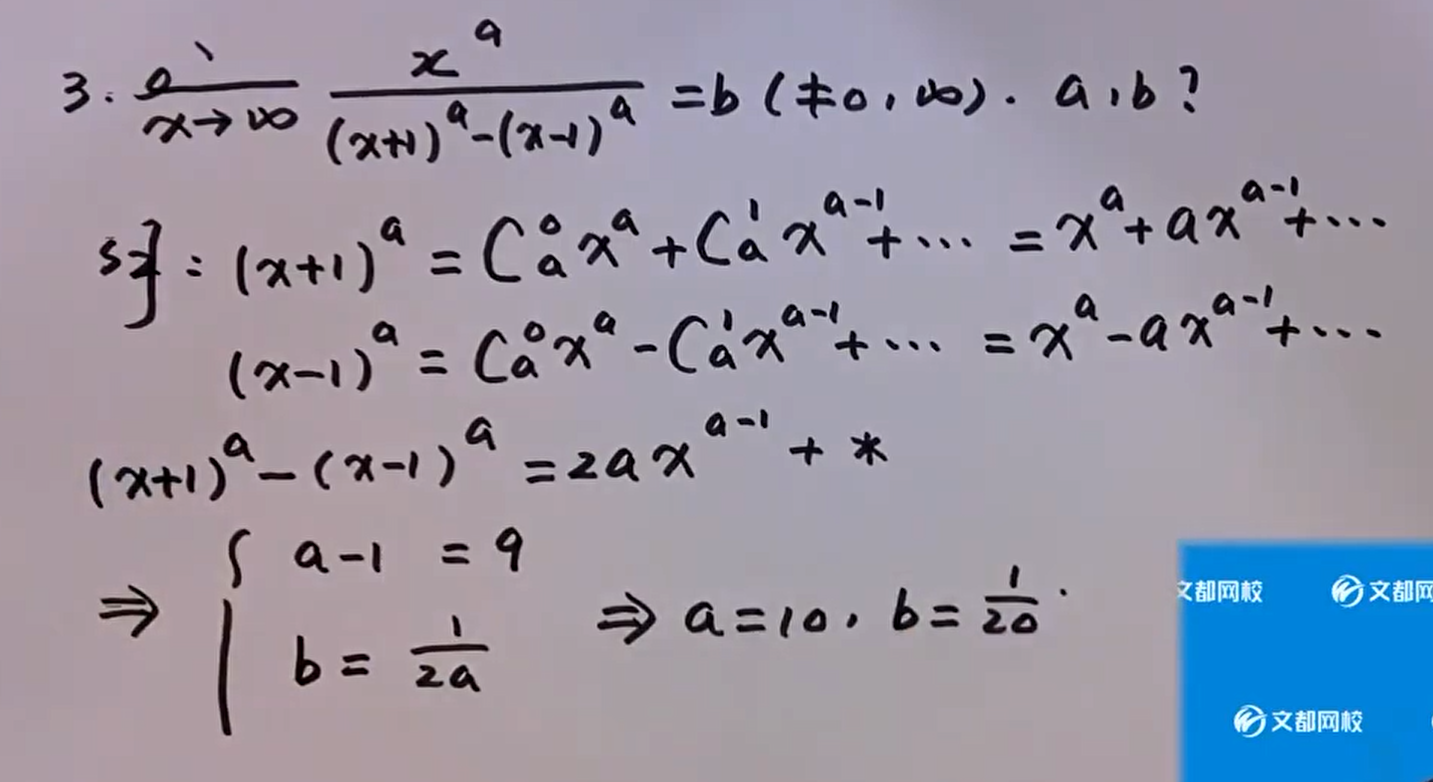 3. lim x→∞ x^9 / ((x+1)^a-(x-1)^a) = b (≠0, ∞). a, b?
: (x+1)^a = C_a^0 x^a + C_a^1 x^{a-1} + ··· = x^a + ax^{a-1} + ···
(x-1)^a = C_a^0 x^a - C_a^1 x^{a-1} + ··· = x^a - ax^{a-1} + ···
(x+1)^a - (x-1)^a = 2ax^{a-1} + *
⇒ { a-1 = 9
b = 1/2a ⇒ a=10, b = 1/20.
文都网校 文都网
文都网校